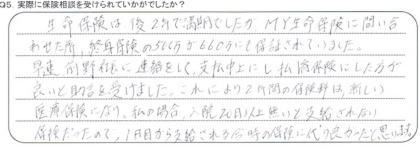 Q5. 実際に保険相談を受けられていかがでしたか？
生命保険は後2年で満期でしたが MY生命保険に問い合
わせた所、終身保険の500万が660万にも保証されていました。
早速 前野様に連絡をして、支払中止にし 払済保険にした方が
良いと助言を受けました。これにより2年間の保険料は、新しい
医療保険になり、私の場合、入院20日以上無いと支給されない
保険だったので、1日目から支給される今時の保険に代り良かったと思います